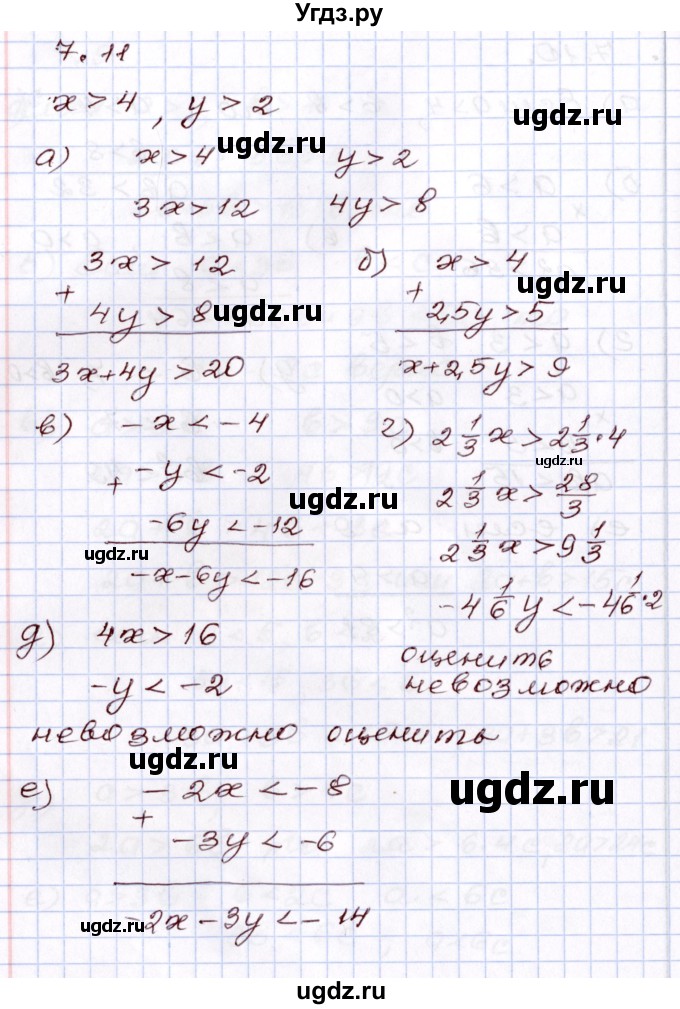 Угдз.ру
7.11
x > 4, y > 2
ugdz.ru
а) x > 4 y > 2
ugdz.ru
3x > 12 4y > 8
3x > 12 б) x > 4
+ 4y > 8 + 2,5y > 5
ugdz.ru
ugdz.ru
3x+4y > 20 x+2,5y > 9
в) -x < -4 г) 2 1/3 x > 2 1/3 · 4
ugdz.ru
+ -y < -2 2 1/3 x > 28/3
ugdz.ru
-6y < -12 2 1/3 x > 9 1/3
ugdz.ru
ugdz.ru
-x-6y < -16
-4 1/6 y < -4 1/6 · 2
д) 4x > 16 оценить
-y < -2 невозможно
ugdz.ru
невозможно оценить
ugdz.ru
е) -2x < -8
ugdz.ru
+ -3y < -6
-2x-3y < -14
ugdz.ru
ugdz.ru
ugdz.ru